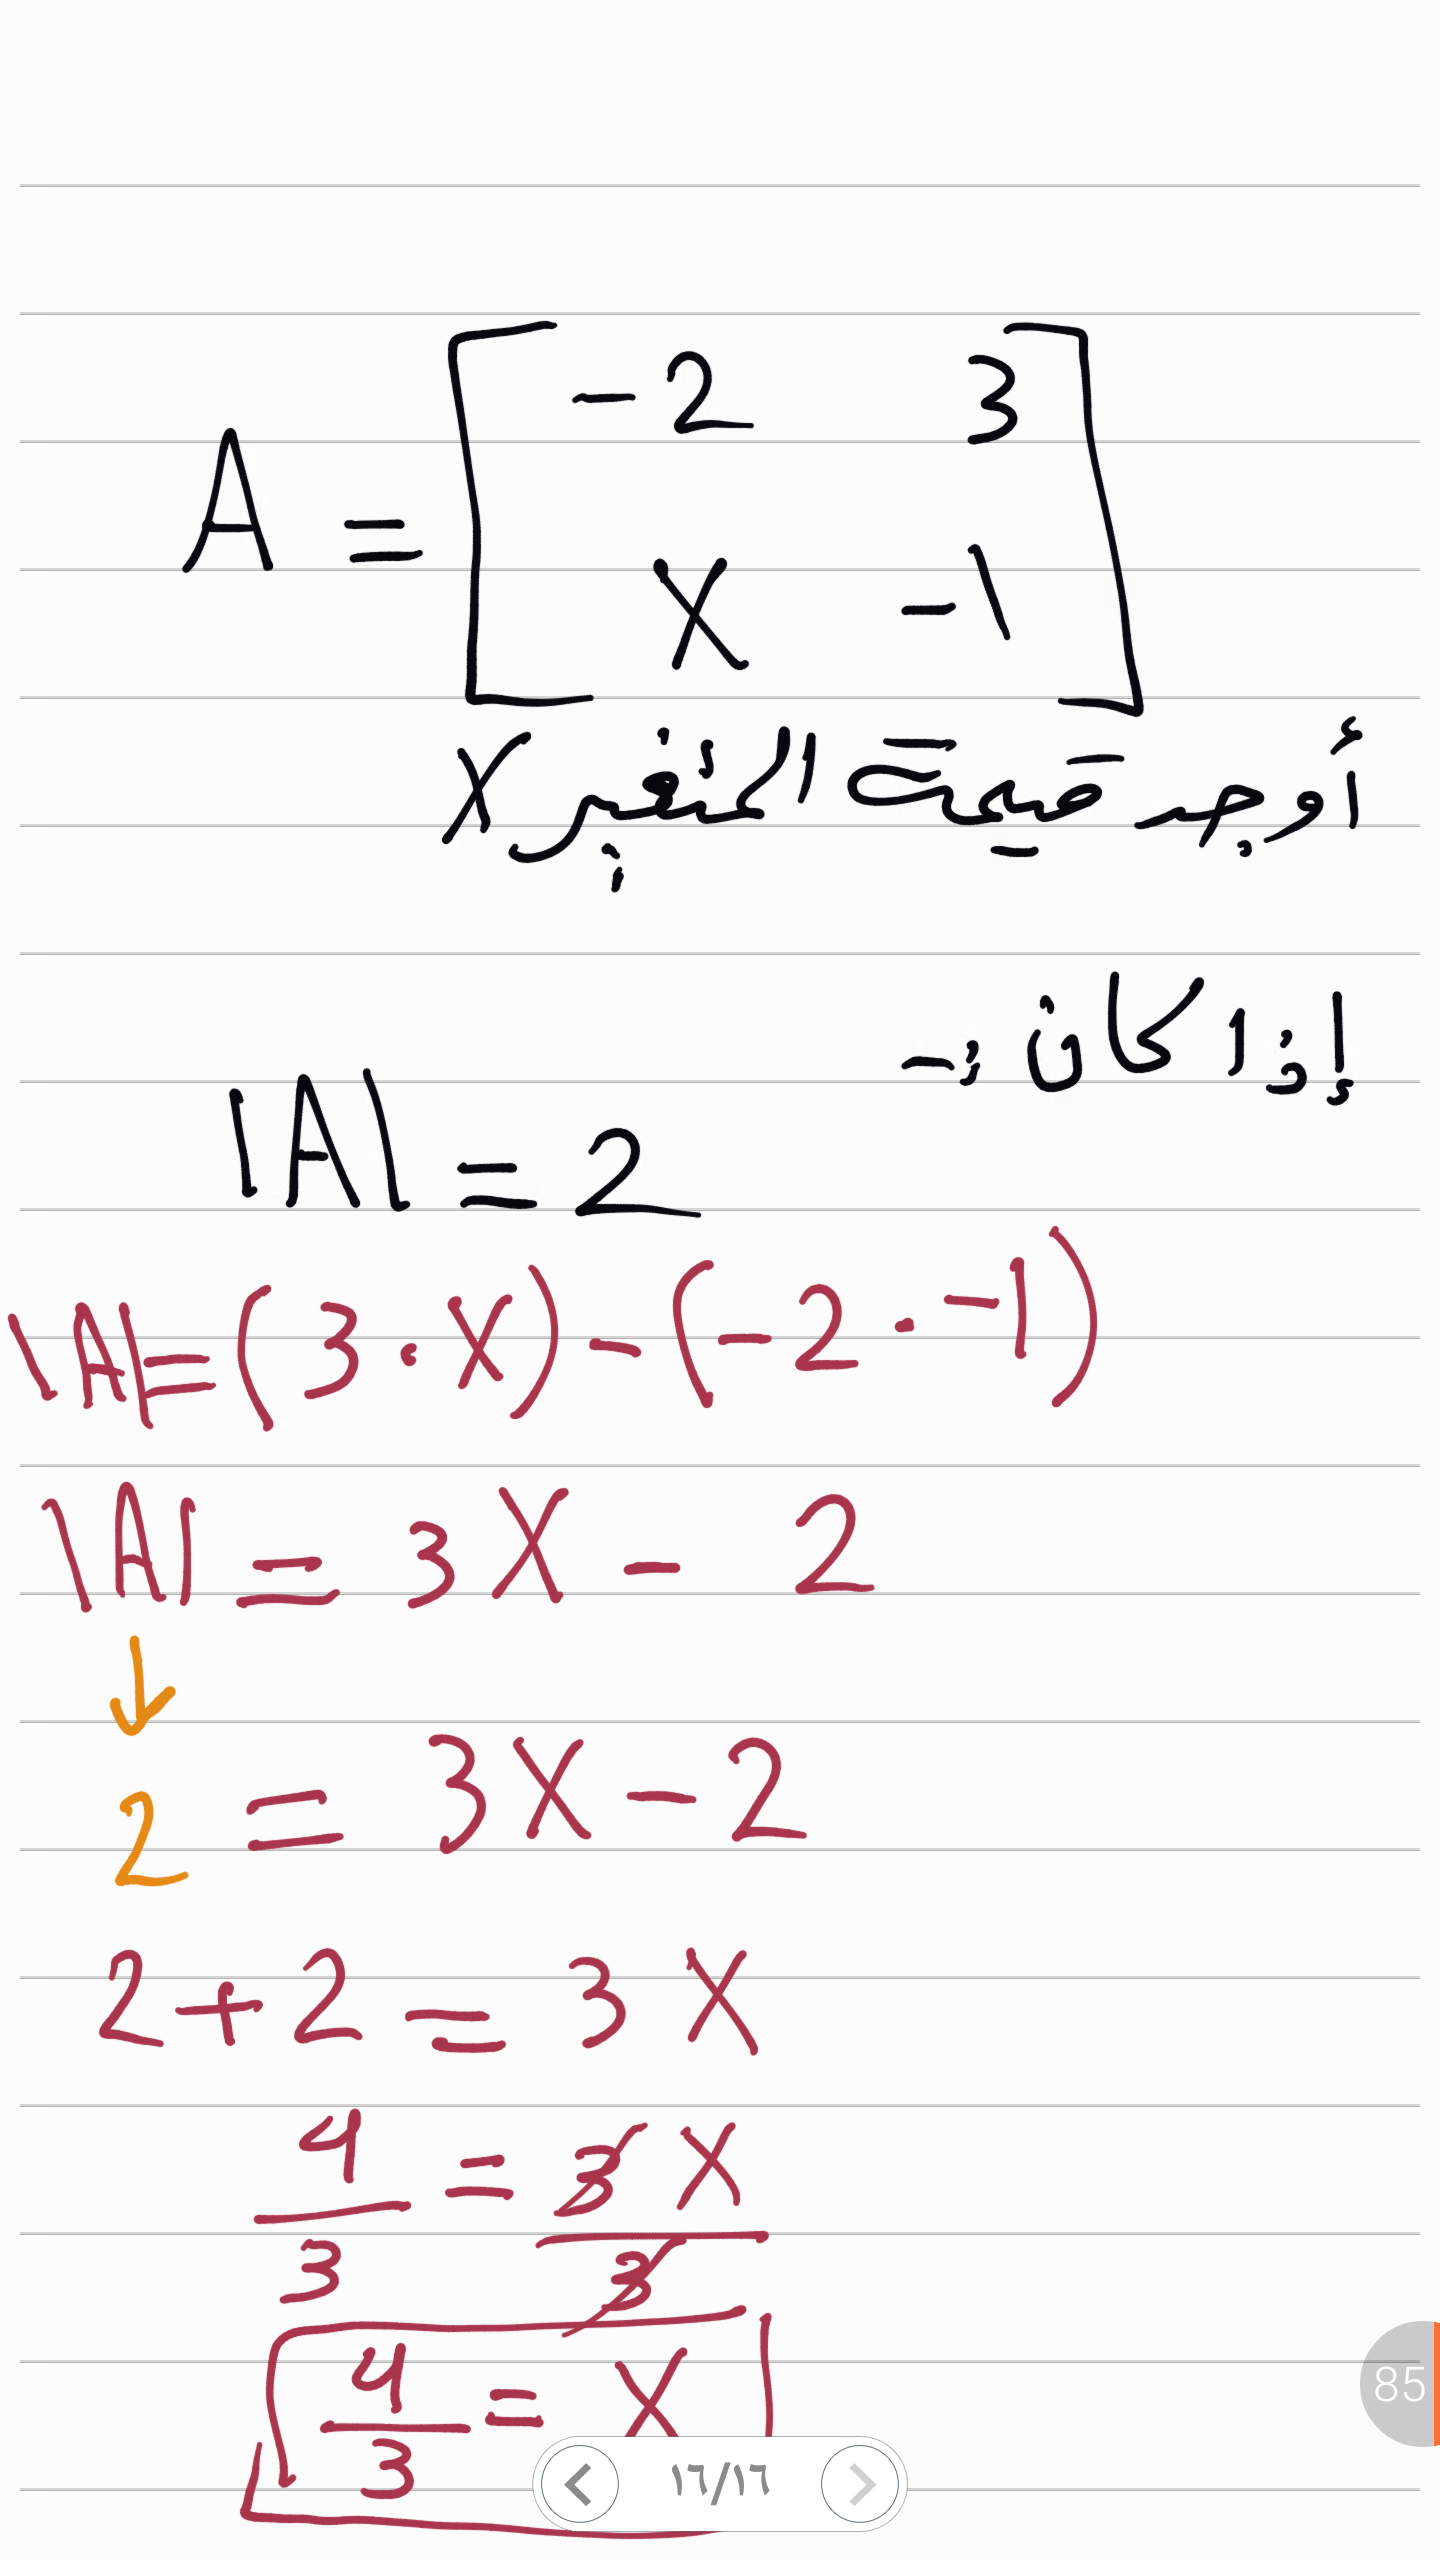 A = [ -2 3
X -1 ]
أوجد قيمة المتغير X
إذا كان :-
|A| = 2
|A| = (3 . X) - (-2 . -1)
|A| = 3X - 2
↓
2 = 3X - 2
2 + 2 = 3X
4/3 = 3X/3
4/3 = X
85
١٦/١٦